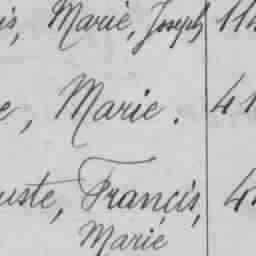 is, Marie, Joseph 114
e, Marie. 41
uste, Francis, 4
Marie